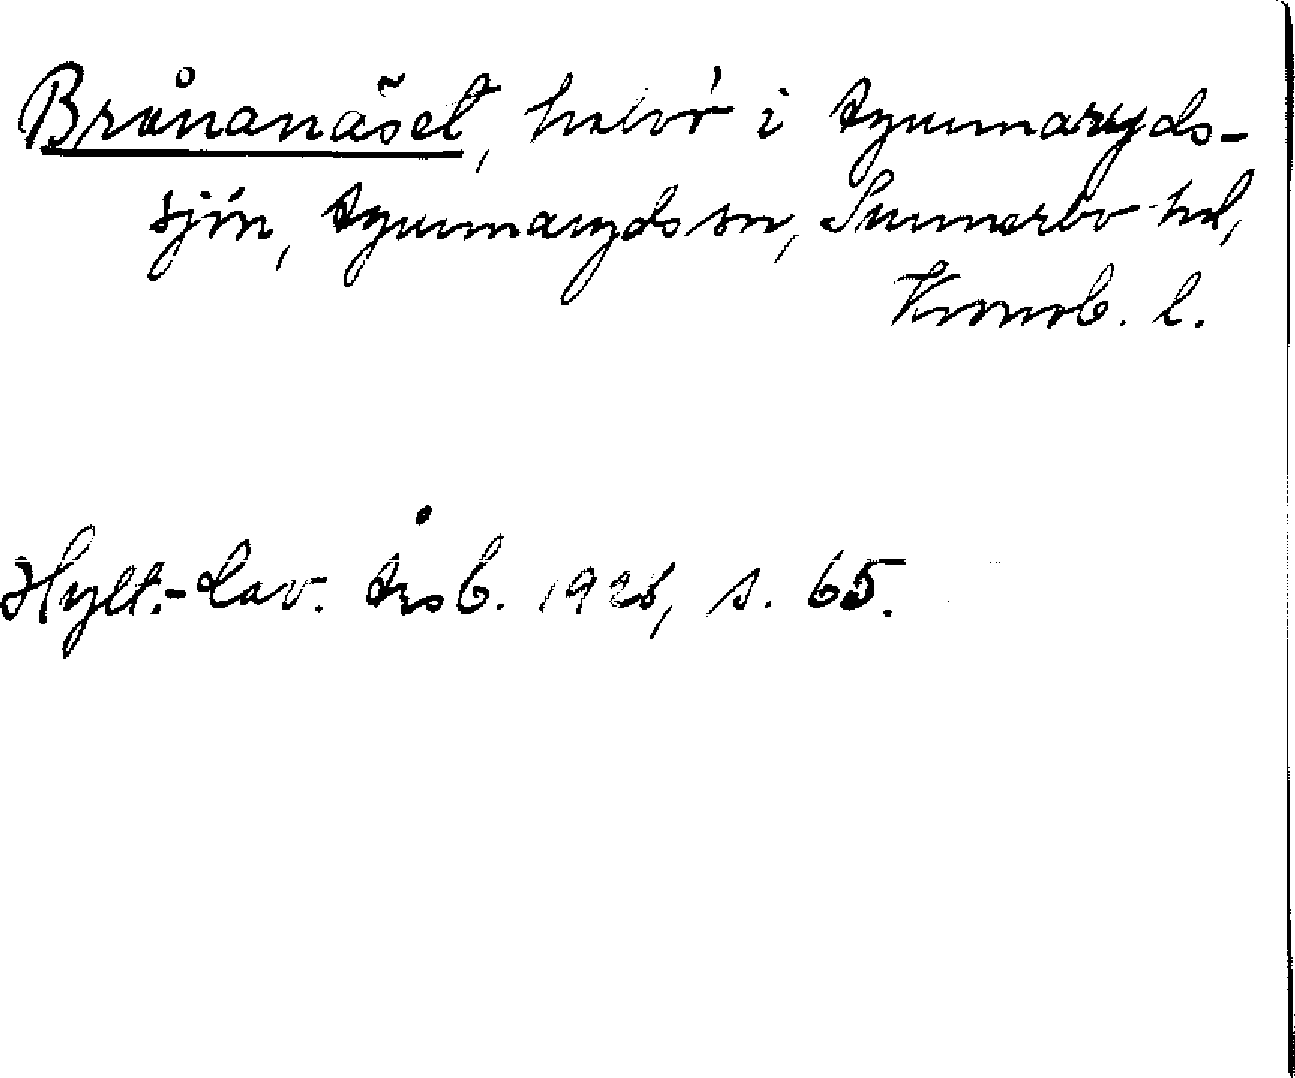 Brånanäset, halvö i Agunnaryds-
sjön, Agunnaryds sn, Sunnerbo hd,
Kronob. l.
Hylt.-Cav. Årsb. 1928, s. 65.